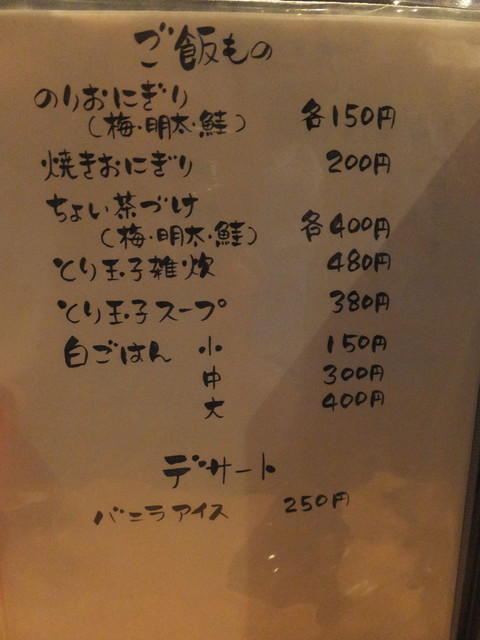 ご飯もの
のりおにぎり
(梅・明太・鮭) 各150円
焼きおにぎり 200円
ちょい茶づけ
(梅・明太・鮭) 各400円
とり玉子雑炊 480円
とり玉子スープ 380円
白ごはん 小 150円
中 300円
大 400円
デザート
バニラアイス 250円